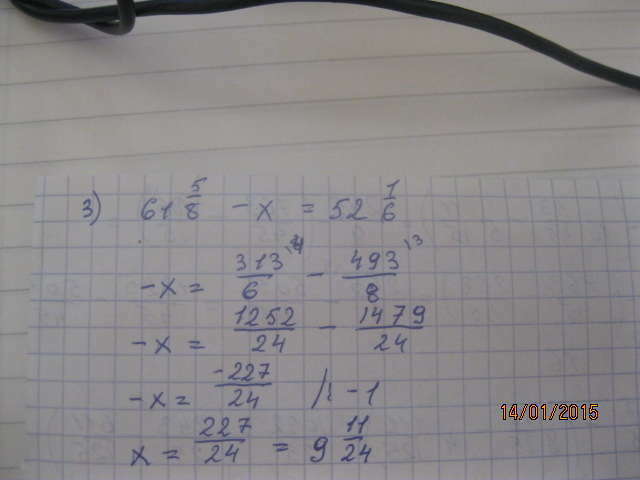 3) 61 5/8 - x = 52 1/6
-x = 313/6 ·4 - 493/8 ·3
-x = 1252/24 - 1479/24
-x = -227/24 /: -1
x = 227/24 = 9 11/24
14/01/2015